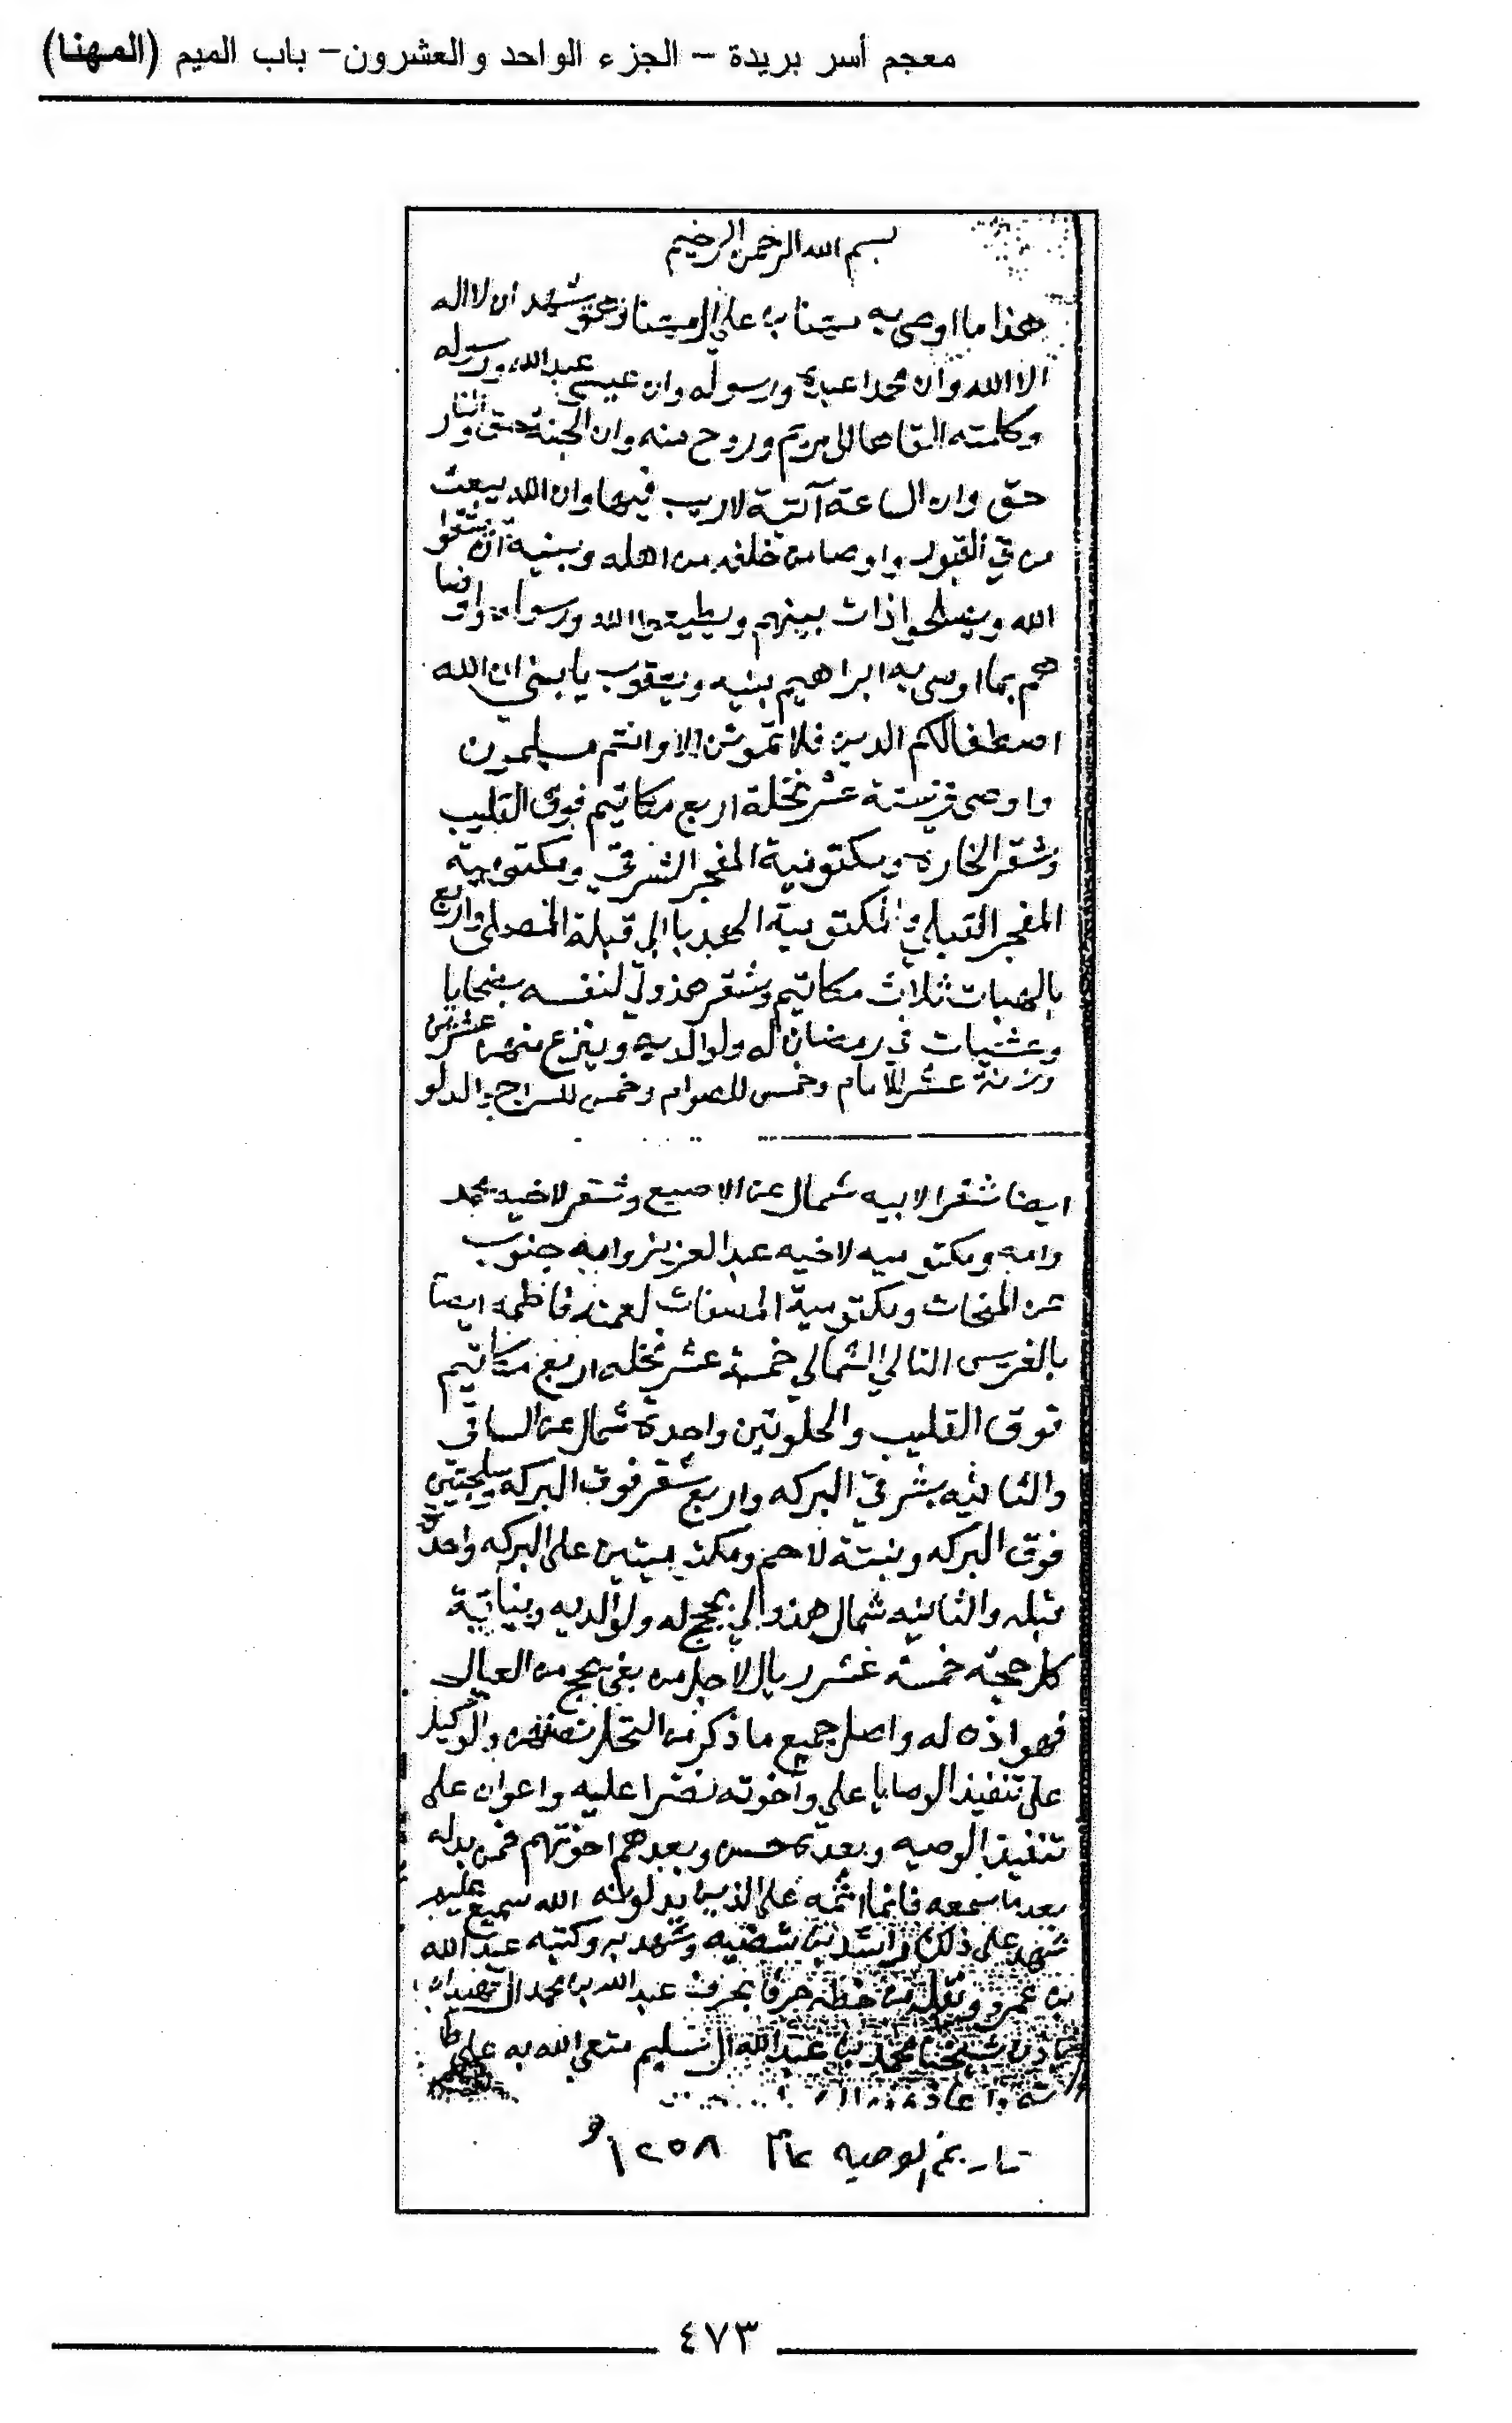 معجم أسر بريدة – الجزء الواحد والعشرون– باب الميم (المهنا)
بسم الله الرحمن الرحيم
هذا ما اوصى به علي شهد ان لا اله
الا الله وان محمدا عبده ورسوله وان عيسى عبدالله ورسوله
وكلمته القاها الى مريم وروح منه وان الجنة حق والنار
حق وان الساعة آتية لاريب فيها وان الله يبعث
من في القبور واوصا من خلفه من اهله وبنيه ان يتقوا
الله ويصلحوا ذات بينهم ويطيعوا الله ورسوله واوصا
هم بما اوصى به ابراهيم بنيه ويعقوب يا بني ان الله
اصطفا لكم الدين فلا تموتن الا وانتم مسلمون
واوصى ستة عشر نخلة اربع مكاتيم فوق القليب
وشقر ومكتومية المفجر الشرقي ومكتومية
المفجر القبلي والمكتومية قبلة المصلى واربع
ثلاث مكاتيم وشقر هذولي لنفسه بضحايا
وعشيات في رمضان له ولوالديه وينزع منهن عشرين
وزنة عشر للامام وخمس للصوام وخمس للسراج والدلو
ايضا شقرا لابيه شمال عن وشقر لاخيه محمد
وامه ومكتوميه لاخيه عبدالعزيز وامه جنوب
عن ومكتومية لعمته فاطمه ايضا
بالغريس التالي الشمالي خمسة عشر نخله اربع مكاتيم
فوق القليب والحلوتين واحدة شمال عن الساقي
والثانيه بشرقي البركه واربع شقر فوق البركة
فوق البركه ونبتة ومكتوميتين على البركه واحدة
قبله والثانيه شمال هذولي بحج له ولوالديه
كل حجته خمسة عشر ريال لاجل من بغى يحج من العيال
فهو اذن له واصل جميع ما ذكر من النخل والوكيل
على تنفيذ الوصايا علي واخوته نضرا عليه واعوان على
تنفيذ الوصيه وبعده محسن وبعدهم اخوتهم فمن بدله
بعد ما سمعه فانما اثمه على الذين يبدلونه الله سميع عليم
شهد على ذلك راشد بن وشهد به وكتبه عبدالله
بن عمرو ونقله من خطه حرفا بحرف عبدالله بن محمد
شيخنا محمد بن عبدالله ال سليم متع الله به على
تاريخ الوصيه عام ١٢٥٨
٤٧٣